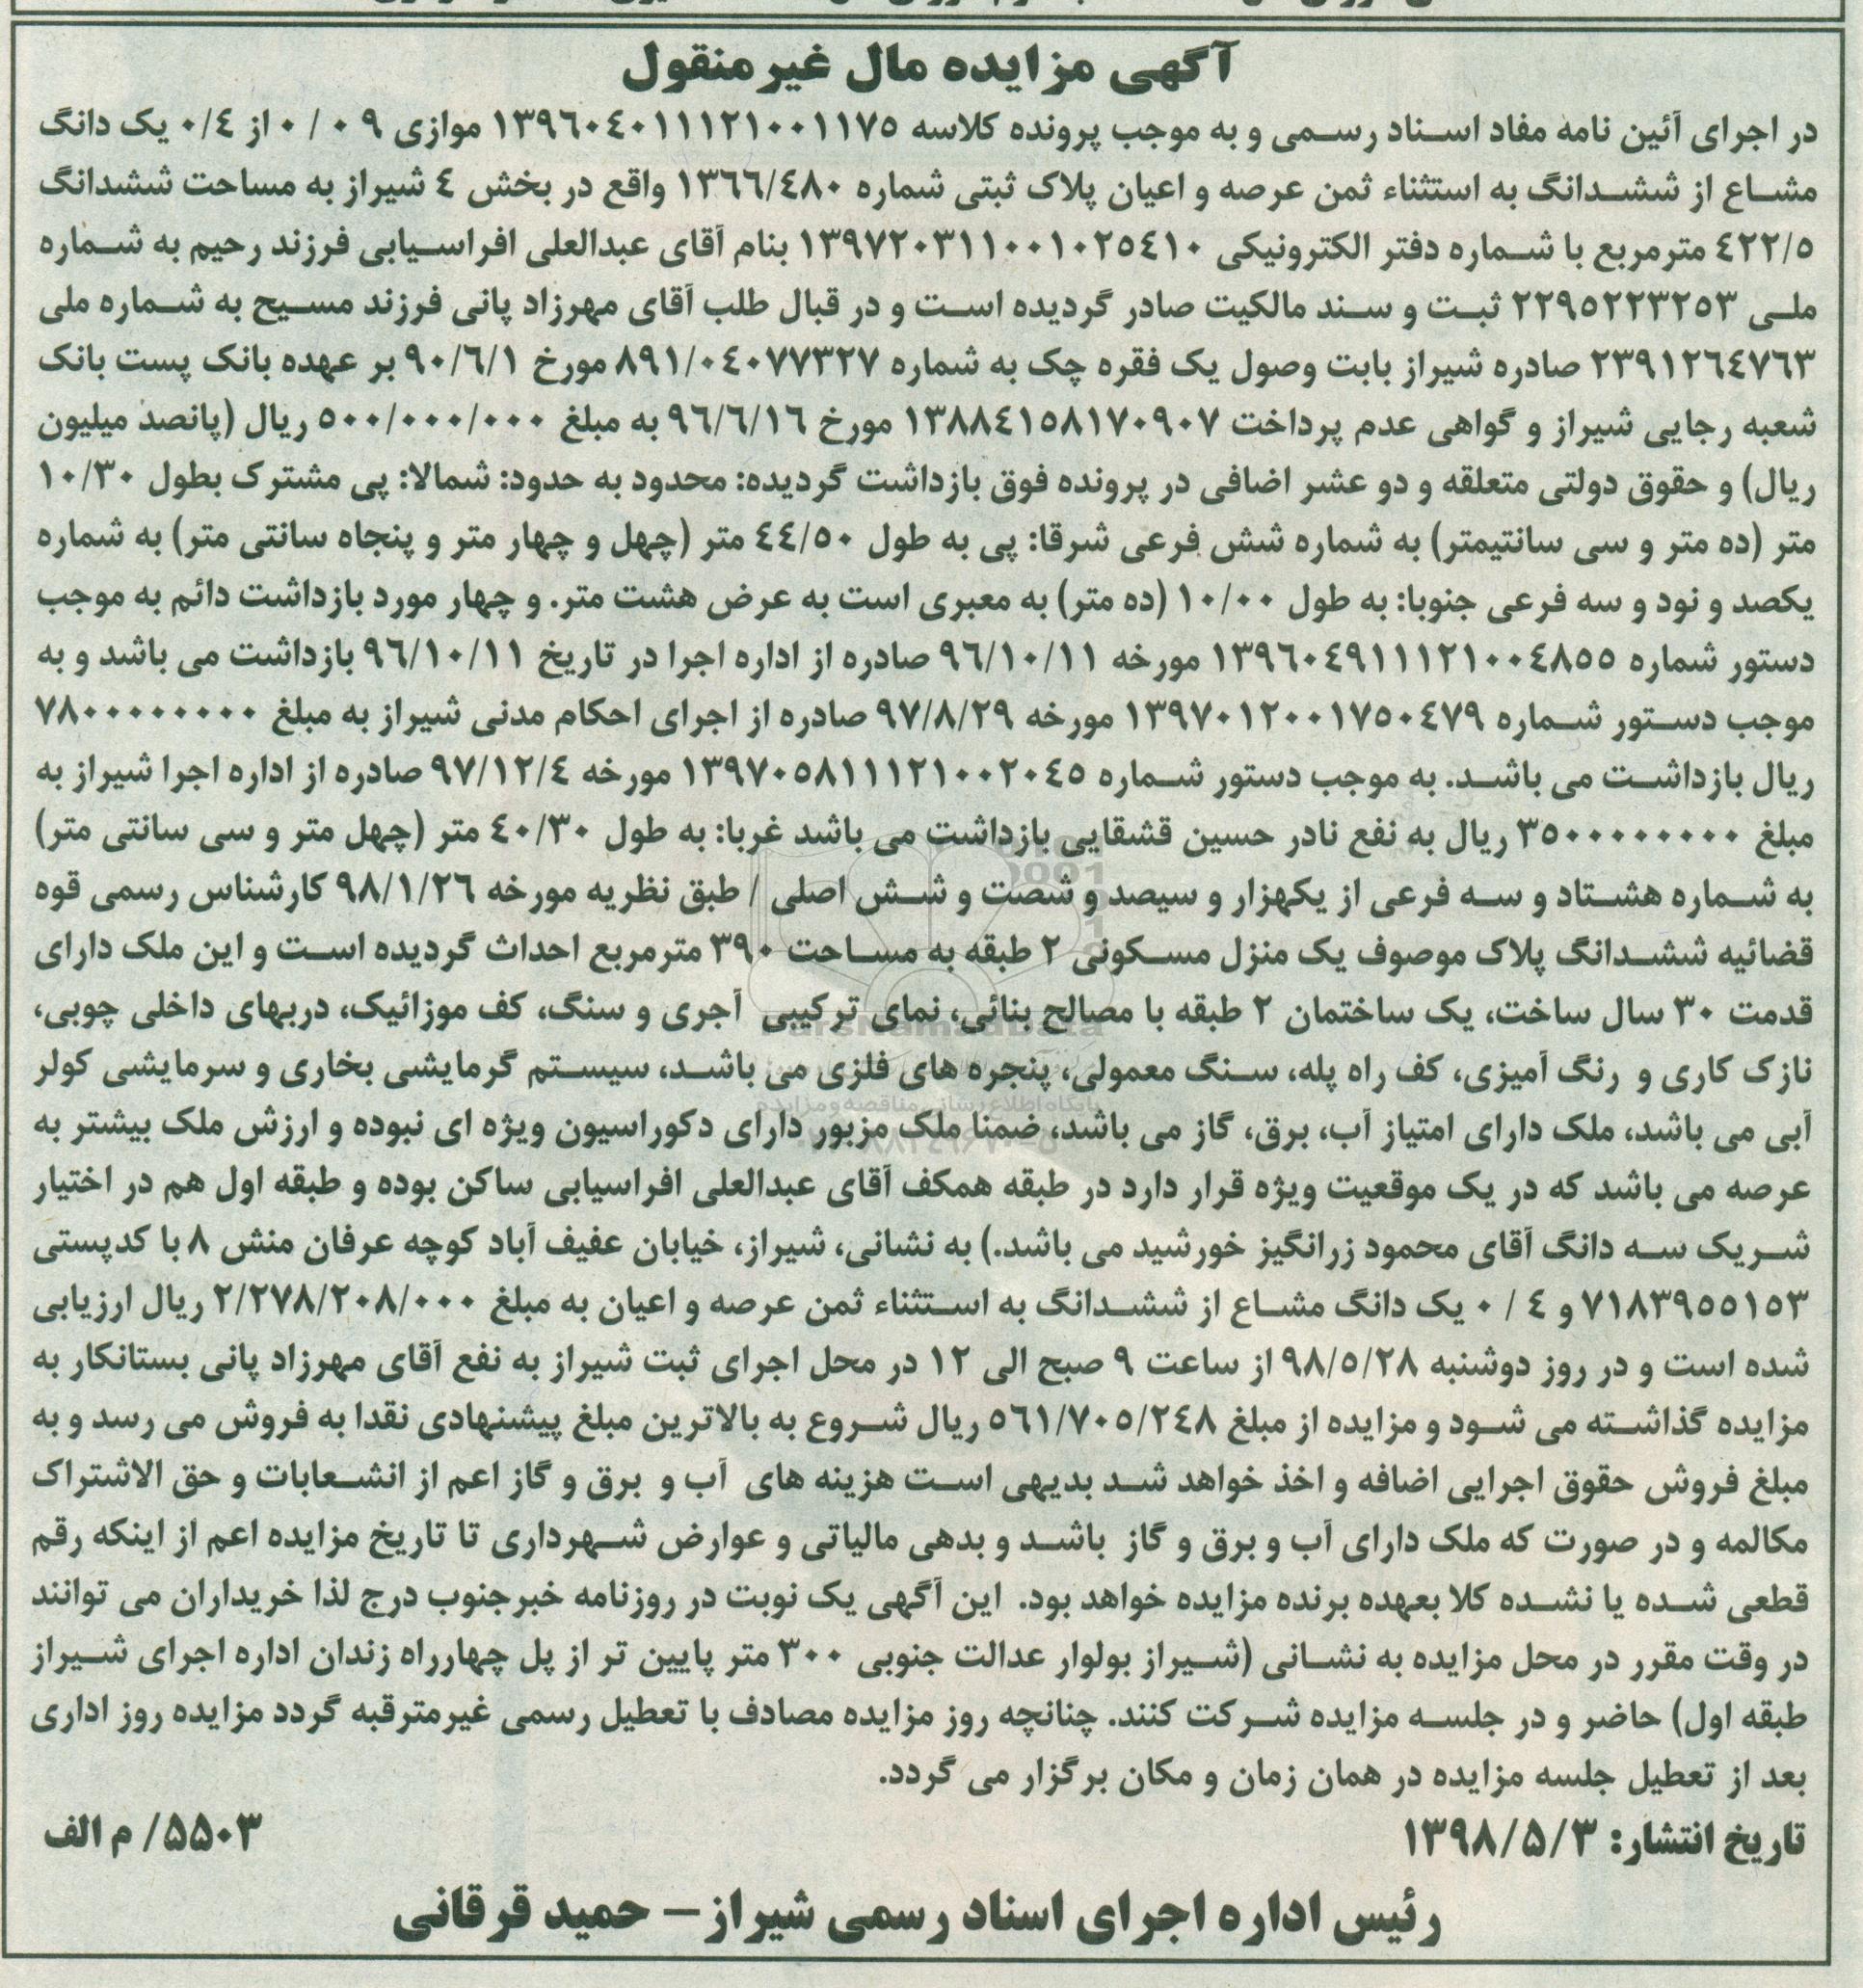 آگهی مزایده مال غیرمنقول
در اجرای آئین نامه مفاد اسناد رسمی و به موجب پرونده کلاسه ۱۳۹۶۰۴۰۱۱۱۲۱۰۰۱۱۷۵ موازی ۰/۰۹ از ۰/۴ یک دانگ
مشاع از ششدانگ به استثناء ثمن عرصه و اعیان پلاک ثبتی شماره ۱۳۶۶/۴۸۰ واقع در بخش ۴ شیراز به مساحت ششدانگ
۴۲۲/۵ مترمربع با شماره دفتر الکترونیکی ۱۳۹۷۲۰۳۱۱۰۰۱۰۲۵۴۱۰ بنام آقای عبدالعلی افراسیابی فرزند رحیم به شماره
ملی ۲۲۹۵۲۲۳۲۵۳ ثبت و سند مالکیت صادر گردیده است و در قبال طلب آقای مهرزاد پانی فرزند مسیح به شماره ملی
۲۳۹۱۲۶۴۷۶۳ صادره شیراز بابت وصول یک فقره چک به شماره ۸۹۱/۰۴۰۷۷۳۲۷ مورخ ۹۰/۶/۱ بر عهده بانک پست بانک
شعبه رجایی شیراز و گواهی عدم پرداخت ۱۳۸۸۴۱۵۸۱۷۰۹۰۷ مورخ ۹۶/۶/۱۶ به مبلغ ۵۰۰/۰۰۰/۰۰۰ ریال (پانصد میلیون
ریال) و حقوق دولتی متعلقه و دو عشر اضافی در پرونده فوق بازداشت گردیده: محدود به حدود: شمالا: پی مشترک بطول ۱۰/۳۰
متر (ده متر و سی سانتیمتر) به شماره شش فرعی شرقا: پی به طول ۴۴/۵۰ متر (چهل و چهار متر و پنجاه سانتی متر) به شماره
یکصد و نود و سه فرعی جنوبا: به طول ۱۰/۰۰ (ده متر) به معبری است به عرض هشت متر. و چهار مورد بازداشت دائم به موجب
دستور شماره ۱۳۹۶۰۴۹۱۱۱۲۱۰۰۴۸۵۵ مورخه ۹۶/۱۰/۱۱ صادره از اداره اجرا در تاریخ ۹۶/۱۰/۱۱ بازداشت می باشد و به
موجب دستور شماره ۱۳۹۷۰۱۲۰۰۱۷۵۰۴۷۹ مورخه ۹۷/۸/۲۹ صادره از اجرای احکام مدنی شیراز به مبلغ ۷۸۰۰۰۰۰۰۰۰۰
ریال بازداشت می باشد. به موجب دستور شماره ۱۳۹۷۰۵۸۱۱۱۲۱۰۰۲۰۴۵ مورخه ۹۷/۱۲/۴ صادره از اداره اجرا شیراز به
مبلغ ۳۵۰۰۰۰۰۰۰۰۰ ریال به نفع نادر حسین قشقایی بازداشت می باشد غربا: به طول ۴۰/۳۰ متر (چهل متر و سی سانتی متر)
به شماره هشتاد و سه فرعی از یکهزار و سیصد و شصت و شش اصلی / طبق نظریه مورخه ۹۸/۱/۲۶ کارشناس رسمی قوه
قضائیه ششدانگ پلاک موصوف یک منزل مسکونی ۲ طبقه به مساحت ۳۹۰ مترمربع احداث گردیده است و این ملک دارای
قدمت ۳۰ سال ساخت، یک ساختمان ۲ طبقه با مصالح بنائی، نمای ترکیبی آجری و سنگ، کف موزائیک، دربهای داخلی چوبی،
نازک کاری و رنگ آمیزی، کف راه پله، سنگ معمولی، پنجره های فلزی می باشد، سیستم گرمایشی بخاری و سرمایشی کولر
آبی می باشد، ملک دارای امتیاز آب، برق، گاز می باشد، ضمنا ملک مزبور دارای دکوراسیون ویژه ای نبوده و ارزش ملک بیشتر به
عرصه می باشد که در یک موقعیت ویژه قرار دارد در طبقه همکف آقای عبدالعلی افراسیابی ساکن بوده و طبقه اول هم در اختیار
شریک سه دانگ آقای محمود زرانگیز خورشید می باشد.) به نشانی، شیراز، خیابان عفیف آباد کوچه عرفان منش ۸ با کدپستی
۷۱۸۳۹۵۵۱۵۳ و ۰/۴ یک دانگ مشاع از ششدانگ به استثناء ثمن عرصه و اعیان به مبلغ ۲/۲۷۸/۲۰۸/۰۰۰ ریال ارزیابی
شده است و در روز دوشنبه ۹۸/۵/۲۸ از ساعت ۹ صبح الی ۱۲ در محل اجرای ثبت شیراز به نفع آقای مهرزاد پانی بستانکار به
مزایده گذاشته می شود و مزایده از مبلغ ۵۶۱/۷۰۵/۲۴۸ ریال شروع به بالاترین مبلغ پیشنهادی نقدا به فروش می رسد و به
مبلغ فروش حقوق اجرایی اضافه و اخذ خواهد شد بدیهی است هزینه های آب و برق و گاز اعم از انشعابات و حق الاشتراک
مکالمه و در صورت که ملک دارای آب و برق و گاز باشد و بدهی مالیاتی و عوارض شهرداری تا تاریخ مزایده اعم از اینکه رقم
قطعی شده یا نشده کلا بعهده برنده مزایده خواهد بود. این آگهی یک نوبت در روزنامه خبرجنوب درج لذا خریداران می توانند
در وقت مقرر در محل مزایده به نشانی (شیراز بولوار عدالت جنوبی ۳۰۰ متر پایین تر از پل چهارراه زندان اداره اجرای شیراز
طبقه اول) حاضر و در جلسه مزایده شرکت کنند. چنانچه روز مزایده مصادف با تعطیل رسمی غیرمترقبه گردد مزایده روز اداری
بعد از تعطیل جلسه مزایده در همان زمان و مکان برگزار می گردد.
تاریخ انتشار: ۱۳۹۸/۵/۳
۵۵۰۳/ م الف
رئیس اداره اجرای اسناد رسمی شیراز – حمید قرقانی